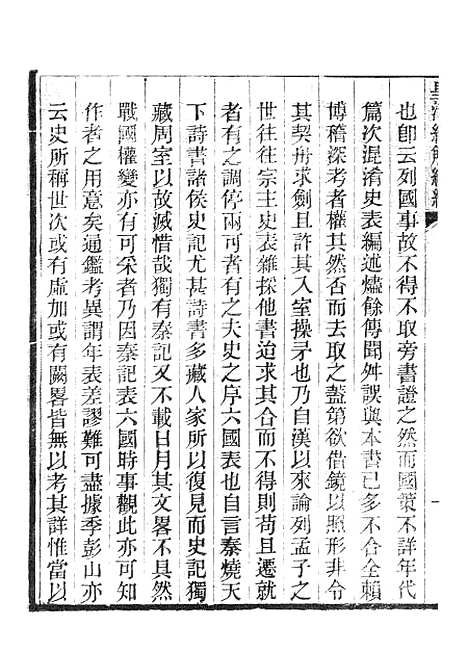 也卽云列國事故不得不取旁書證之然而國策不詳年代
篇次混淆史表編述燼餘傳聞舛誤與本書已多不合全賴
博稽深考者權其然否而去取之蓋第欲借鏡以照形非令
其契舟求劍且許其入室操矛也乃自漢以來論列孟子之
世往往宗主史表雜探他書迫求其合而不得則苟且遷就
者有之調停兩可者有之夫史之序六國表也自言秦燒天
下詩書諸侯史記尤甚詩書多藏人家所以復見而史記獨
藏周室以故滅惜哉獨有秦記又不載日月其文畧不具然
戰國權變亦有可采者乃因秦記表六國時事觀此亦可知
作者之用意矣通鑑考異謂年表差謬難可盡據季彭山亦
云史所稱世次或有虛加或有闕畧皆無以考其詳惟當以